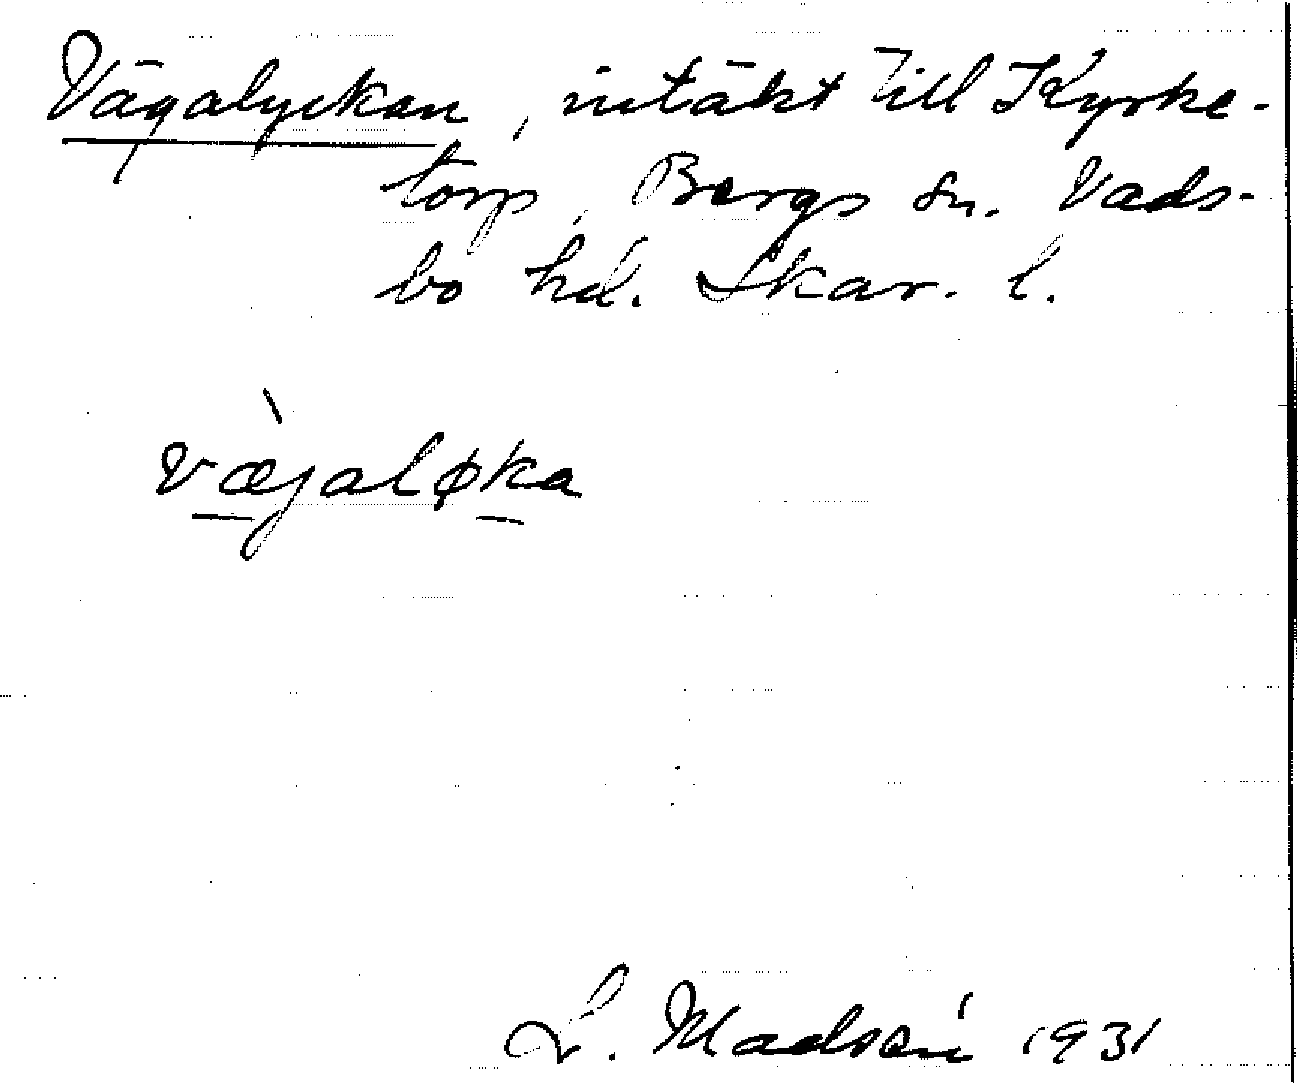 Vägalyckan, intäkt till Kyrke-
torp, Bergs sn. Vads-
bo hd. Skar. l.
væ̀jaløka
L. Madsén 1931